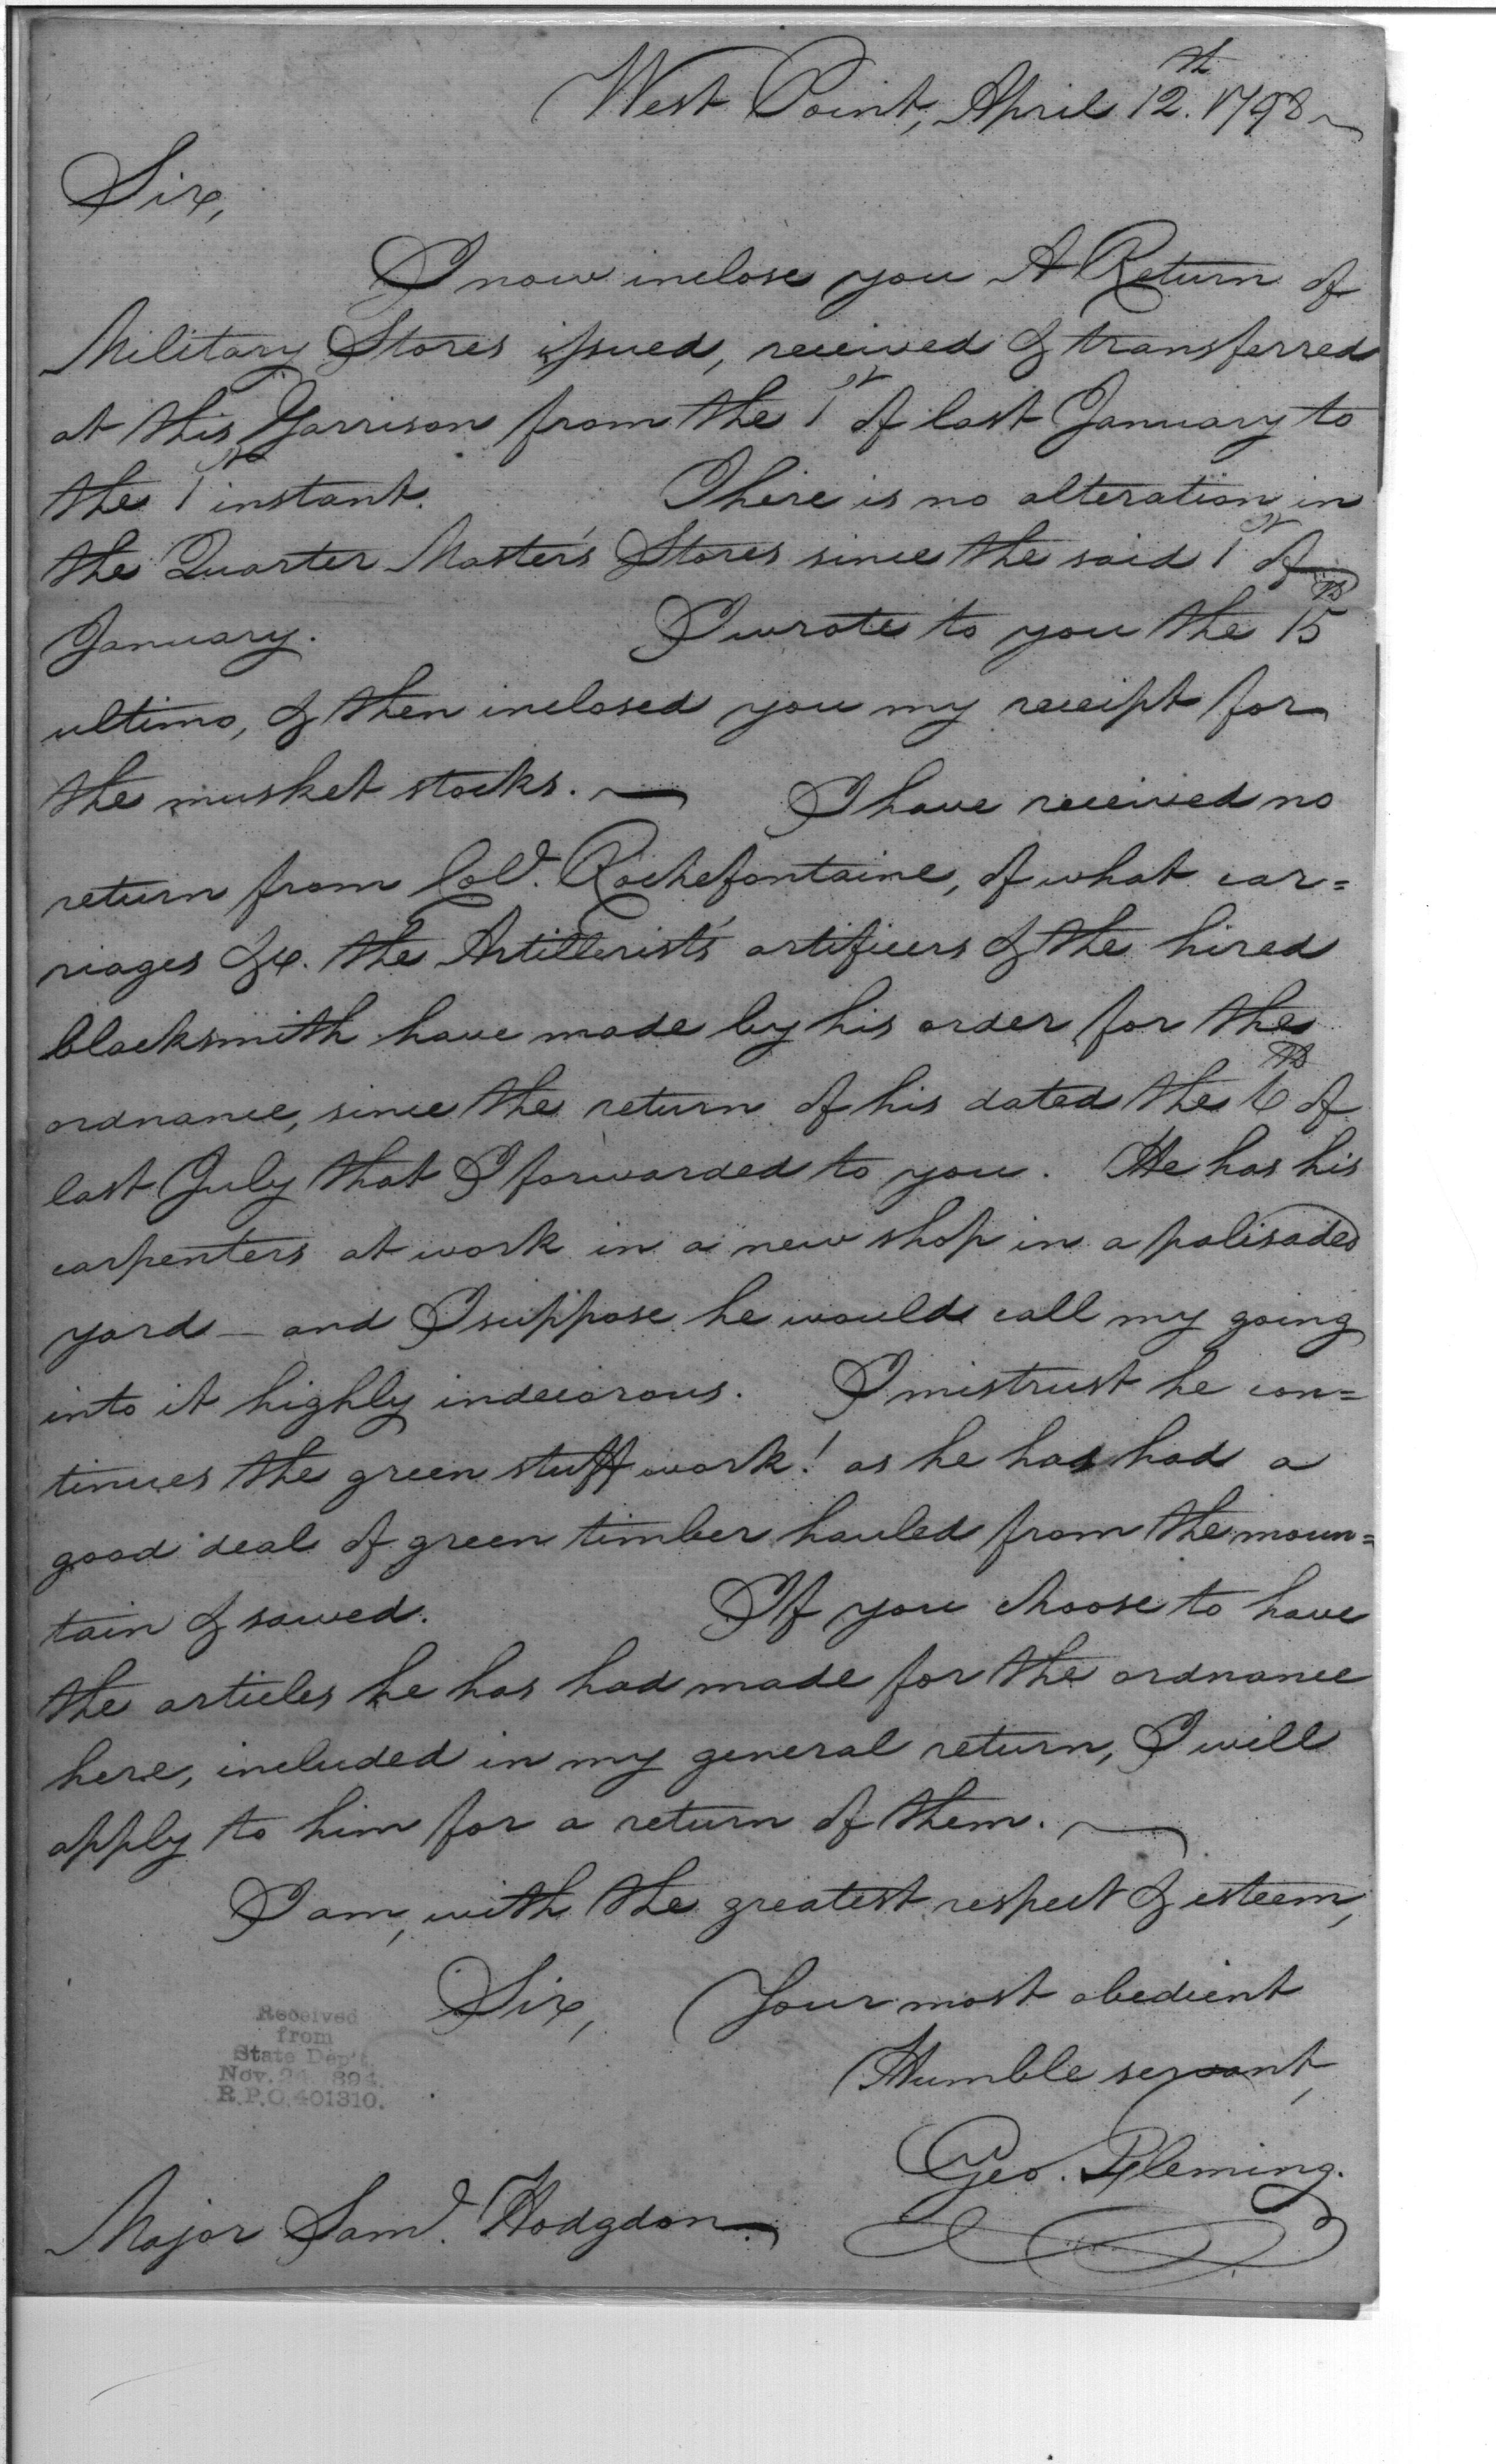 West Point, April 12th. 1798
Sir,
I now inclose you A Return of
Military Stores issued, received & transferred
at this Garrison from the 1st of last January to
the 1st instant. There is no alteration in
the Quarter Master's Stores since the said 1st of
January. I wrote to you the 15th
ultimo, & then inclosed you my receipt for
the musket stocks. — I have received no
return from Col. Rochefontaine, of what car=
riages &c. the Artillerists' artificers & the hired
blacksmith have made by his order for the
ordnance, since the return of his dated the 6th of
last July that I forwarded to you. He has his
carpenters at work in a new shop in a palisaded
yard — and I suppose he would call my going
into it highly indecorous. I mistrust he con=
tinues the green stuff work! as he has had a
good deal of green timber hauled from the moun=
tain & sawed. If you choose to have
the articles he has had made for the ordnance
here, included in my general return, I will
apply to him for a return of them. —
I am, with the greatest respect & esteem,
Sir, Your most obedient
Humble servant,
Geo. Fleming.
Major Saml. Hodgdon.
Received
from
State Dep't.
Nov. 24, 1894.
R.P.O. 401310.